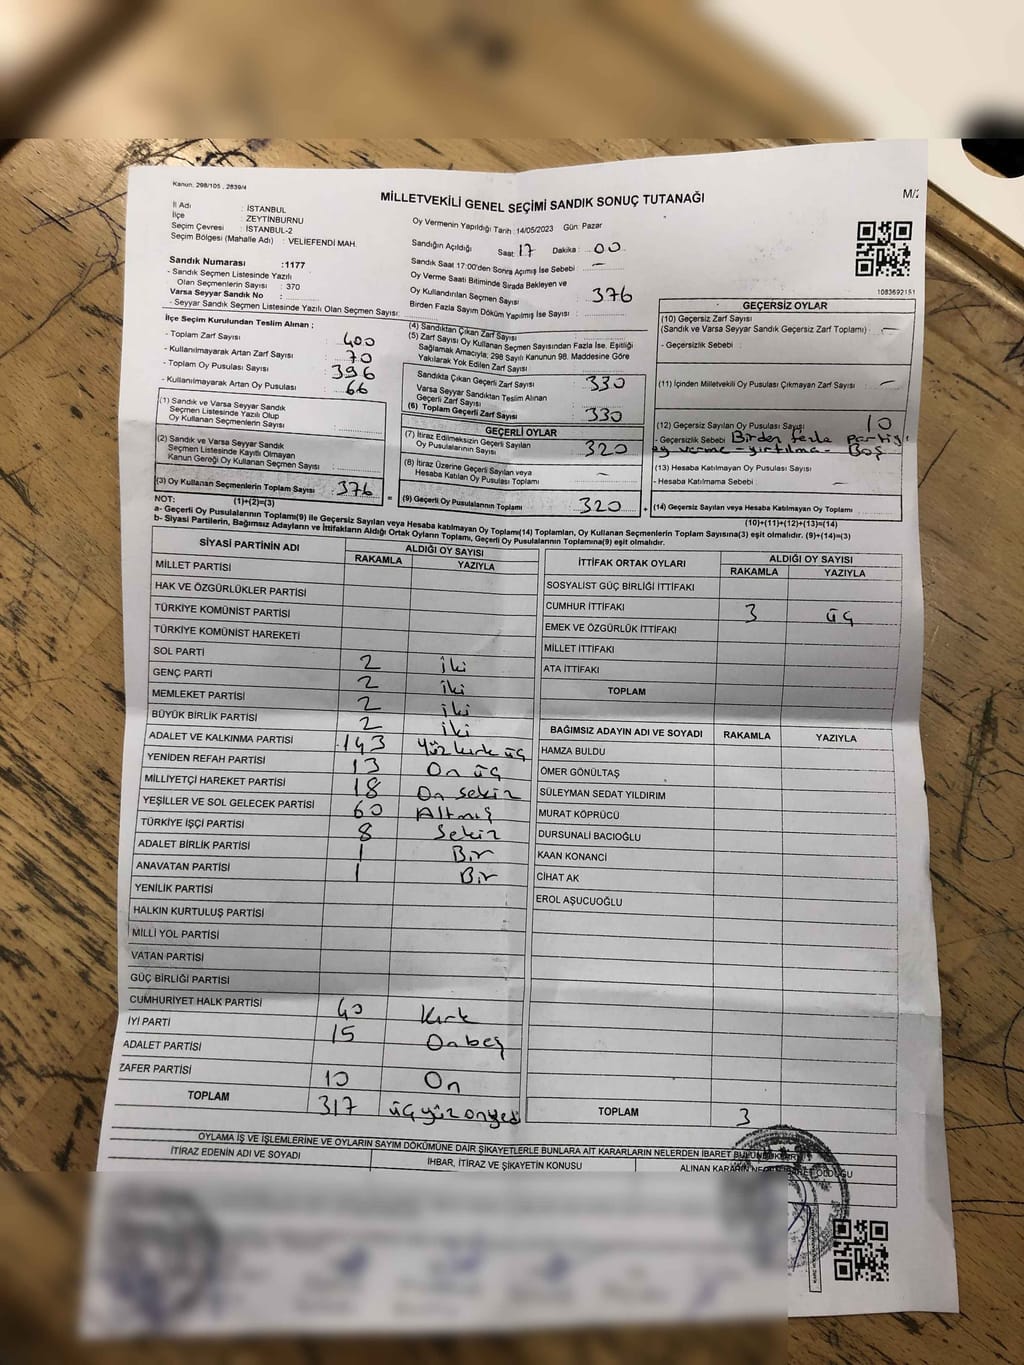 Kanun, 298/105 , 2839/4
MİLLETVEKİLİ GENEL SEÇİMİ SANDIK SONUÇ TUTANAĞI
M/2
İl Adı : İSTANBUL
İlçe : ZEYTİNBURNU
Seçim Çevresi : İSTANBUL-2
Seçim Bölgesi (Mahalle Adı) : VELİEFENDİ MAH.
Oy Vermenin Yapıldığı Tarih :14/05/2023 Gün: Pazar
Sandığın Açıldığı Saat: 17 Dakika : 00
Sandık Saat 17:00'den Sonra Açımış İse Sebebi : —
Oy Verme Saati Bitiminde Sırada Bekleyen ve
Oy Kullandırılan Seçmen Sayısı : 376
Birden Fazla Sayım Döküm Yapılmış İse Sayısı :
Sandık Numarası :1177
- Sandık Seçmen Listesinde Yazılı
Olan Seçmenlerin Sayısı : 370
Varsa Seyyar Sandık No :
- Seyyar Sandık Seçmen Listesinde Yazılı Olan Seçmen Sayısı:
1083692151
İlçe Seçim Kurulundan Teslim Alınan ;
- Toplam Zarf Sayısı : 400
- Kullanılmayarak Artan Zarf Sayısı : 70
- Toplam Oy Pusulası Sayısı : 396
- Kullanılmayarak Artan Oy Pusulası : 66
(1) Sandık ve Varsa Seyyar Sandık
Seçmen Listesinde Yazılı Olup
Oy Kullanan Seçmenlerin Sayısı :
(2) Sandık ve Varsa Seyyar Sandık
Seçmen Listesinde Kayıtlı Olmayan
Kanun Gereği Oy Kullanan Seçmen Sayısı :
(3) Oy Kullanan Seçmenlerin Toplam Sayısı : 376
(4) Sandıktan Çıkan Zarf Sayısı :
(5) Zarf Sayısı Oy Kullanan Seçmen Sayısından Fazla İse, Eşitliği
Sağlamak Amacıyla; 298 Sayılı Kanunun 98. Maddesine Göre
Yakılarak Yok Edilen Zarf Sayısı :
Sandıkta Çıkan Geçerli Zarf Sayısı : 330
Varsa Seyyar Sandıktan Teslim Alınan
Geçerli Zarf Sayısı :
(6) Toplam Geçerli Zarf Sayısı : 330
GEÇERLİ OYLAR
(7) İtiraz Edilmeksizin Geçerli Sayılan
Oy Pusulalarının Sayısı : 320
(8) İtiraz Üzerine Geçerli Sayılan veya
Hesaba Katılan Oy Pusulası Toplamı : —
= (9) Geçerli Oy Pusulalarının Toplamı : 320 +
GEÇERSİZ OYLAR
(10) Geçersiz Zarf Sayısı
(Sandık ve Varsa Seyyar Sandık Geçersiz Zarf Toplamı) : —
- Geçersizlik Sebebi :
(11) İçinden Milletvekili Oy Pusulası Çıkmayan Zarf Sayısı : —
(12) Geçersiz Sayılan Oy Pusulası Sayısı : 10
- Geçersizlik Sebebi : Birden fazla partiye
oy verme - yırtılma - Boş
(13) Hesaba Katılmayan Oy Pusulası Sayısı :
- Hesaba Katılmama Sebebi : —
(14) Geçersiz Sayılan veya Hesaba Katılmayan Oy Pusulası Toplamı :
NOT: (1)+(2)=(3)
(10)+(11)+(12)+(13)=(14)
a- Geçerli Oy Pusulalarının Toplamı(9) ile Geçersiz Sayılan veya Hesaba Katılmayan Oy Toplamı(14) Toplamları, Oy Kullanan Seçmenlerin Toplam Sayısına(3) eşit olmalıdır. (9)+(14)=(3)
b- Siyasi Partilerin, Bağımsız Adayların ve İttifakların Aldığı Ortak Oyların Toplamı, Geçerli Oy Pusulalarının Toplamına(9) eşit olmalıdır.
SİYASİ PARTİNİN ADI ALDIĞI OY SAYISI
RAKAMLA YAZIYLA
MİLLET PARTİSİ
HAK VE ÖZGÜRLÜKLER PARTİSİ
TÜRKİYE KOMÜNİST PARTİSİ
TÜRKİYE KOMÜNİST HAREKETİ
SOL PARTİ 2 iki
GENÇ PARTİ 2 iki
MEMLEKET PARTİSİ 2 iki
BÜYÜK BİRLİK PARTİSİ 2 iki
ADALET VE KALKINMA PARTİSİ 143 Yüz kırk üç
YENİDEN REFAH PARTİSİ 13 On üç
MİLLİYETÇİ HAREKET PARTİSİ 18 On sekiz
YEŞİLLER VE SOL GELECEK PARTİSİ 60 Altmış
TÜRKİYE İŞÇİ PARTİSİ 8 Sekiz
ADALET BİRLİK PARTİSİ 1 Bir
ANAVATAN PARTİSİ 1 Bir
YENİLİK PARTİSİ
HALKIN KURTULUŞ PARTİSİ
MİLLİ YOL PARTİSİ
VATAN PARTİSİ
GÜÇ BİRLİĞİ PARTİSİ
CUMHURİYET HALK PARTİSİ 40 Kırk
İYİ PARTİ 15 Onbeş
ADALET PARTİSİ
ZAFER PARTİSİ 10 On
TOPLAM 317 üçyüz onyedi
İTTİFAK ORTAK OYLARI ALDIĞI OY SAYISI
RAKAMLA YAZIYLA
SOSYALİST GÜÇ BİRLİĞİ İTTİFAKI
CUMHUR İTTİFAKI 3 üç
EMEK VE ÖZGÜRLÜK İTTİFAKI
MİLLET İTTİFAKI
ATA İTTİFAKI
TOPLAM
BAĞIMSIZ ADAYIN ADI VE SOYADI RAKAMLA YAZIYLA
HAMZA BULDU
ÖMER GÖNÜLTAŞ
SÜLEYMAN SEDAT YILDIRIM
MURAT KÖPRÜCÜ
DURSUNALİ BACIOĞLU
KAAN KONANCİ
CİHAT AK
EROL AŞUCUOĞLU
TOPLAM 3
OYLAMA İŞ VE İŞLEMLERİNE VE OYLARIN SAYIM DÖKÜMÜNE DAİR ŞİKAYETLERLE BUNLARA AİT KARARLARIN NELERDEN İBARET BULUNDUKLARI
İTİRAZ EDENİN ADI VE SOYADI İHBAR, İTİRAZ VE ŞİKAYETİN KONUSU ALINAN KARARIN NEDEN İBARET OLDUĞU